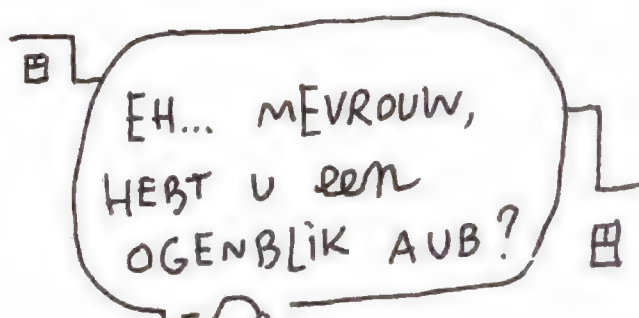 EH... MEVROUW,
HEBT U een
OGENBLIK AUB?